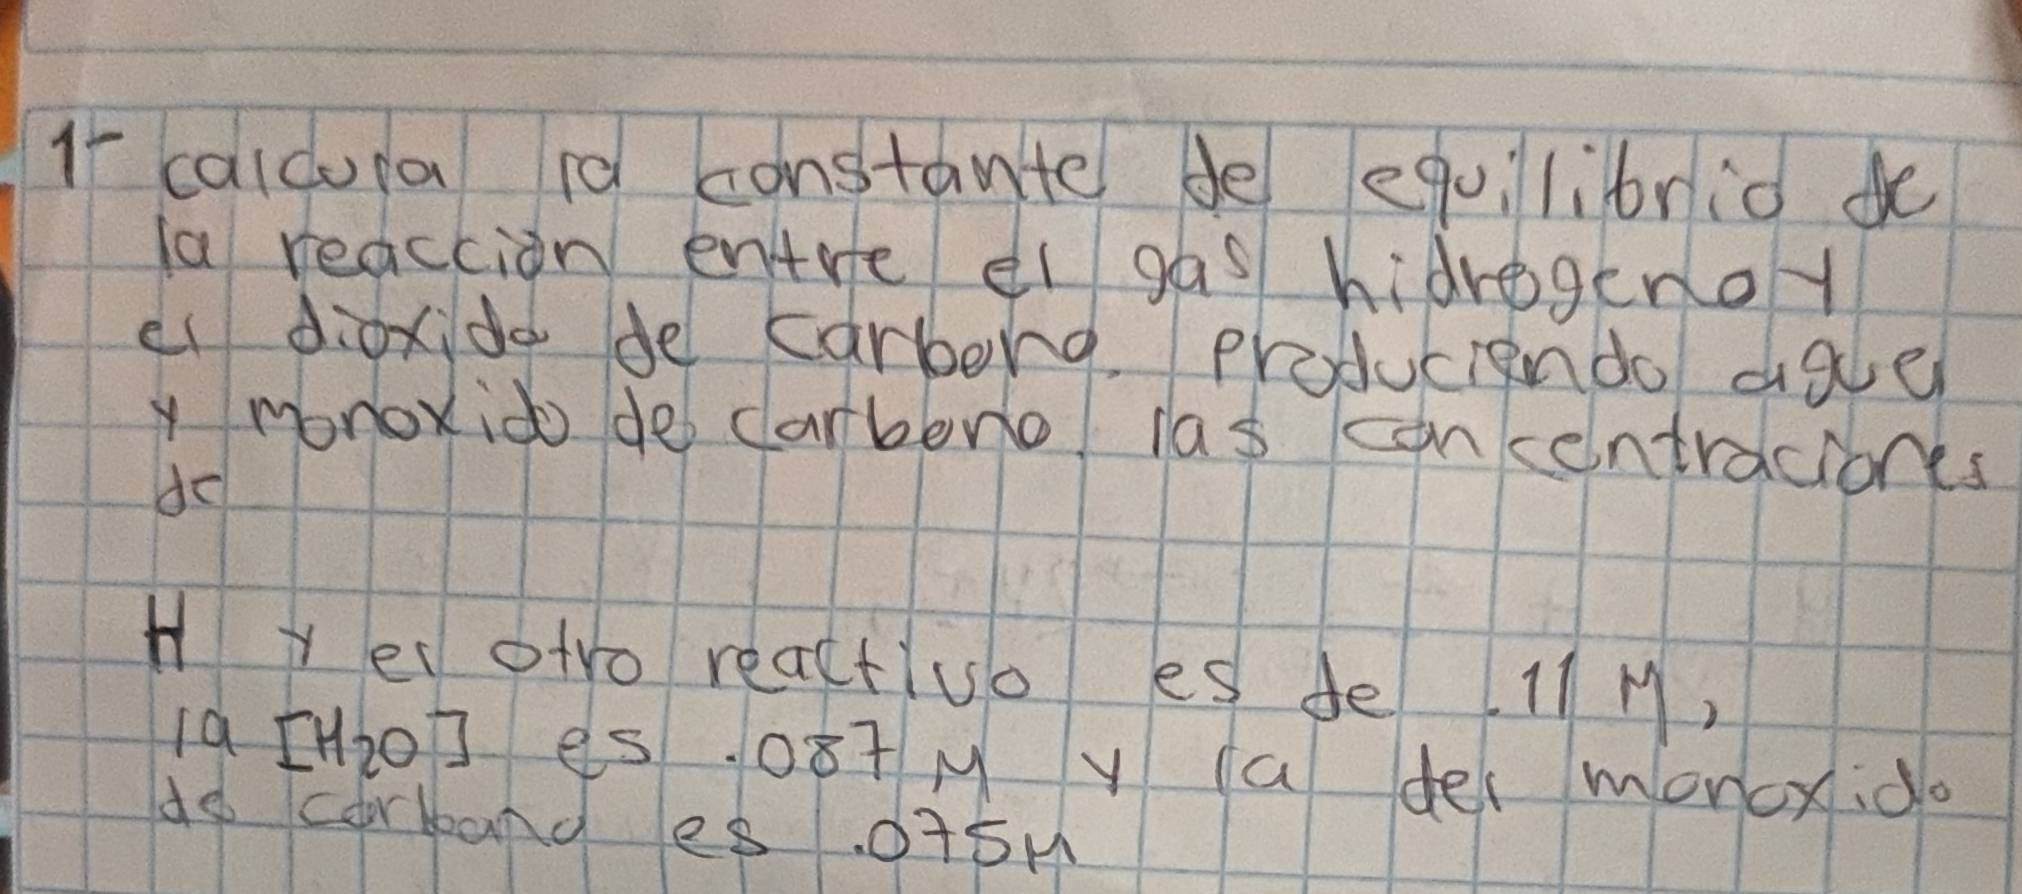 1- calcula la constante de equilibrio de
la reacción entre el gas hidrogeno y
el dioxido de carbono. Produciendo agua
y monoxido de carbono. las concentraciones
de
H y el otro reactivo es de .11 M,
la [H2O] es .087 M y la del monoxido
de carbano es .075M